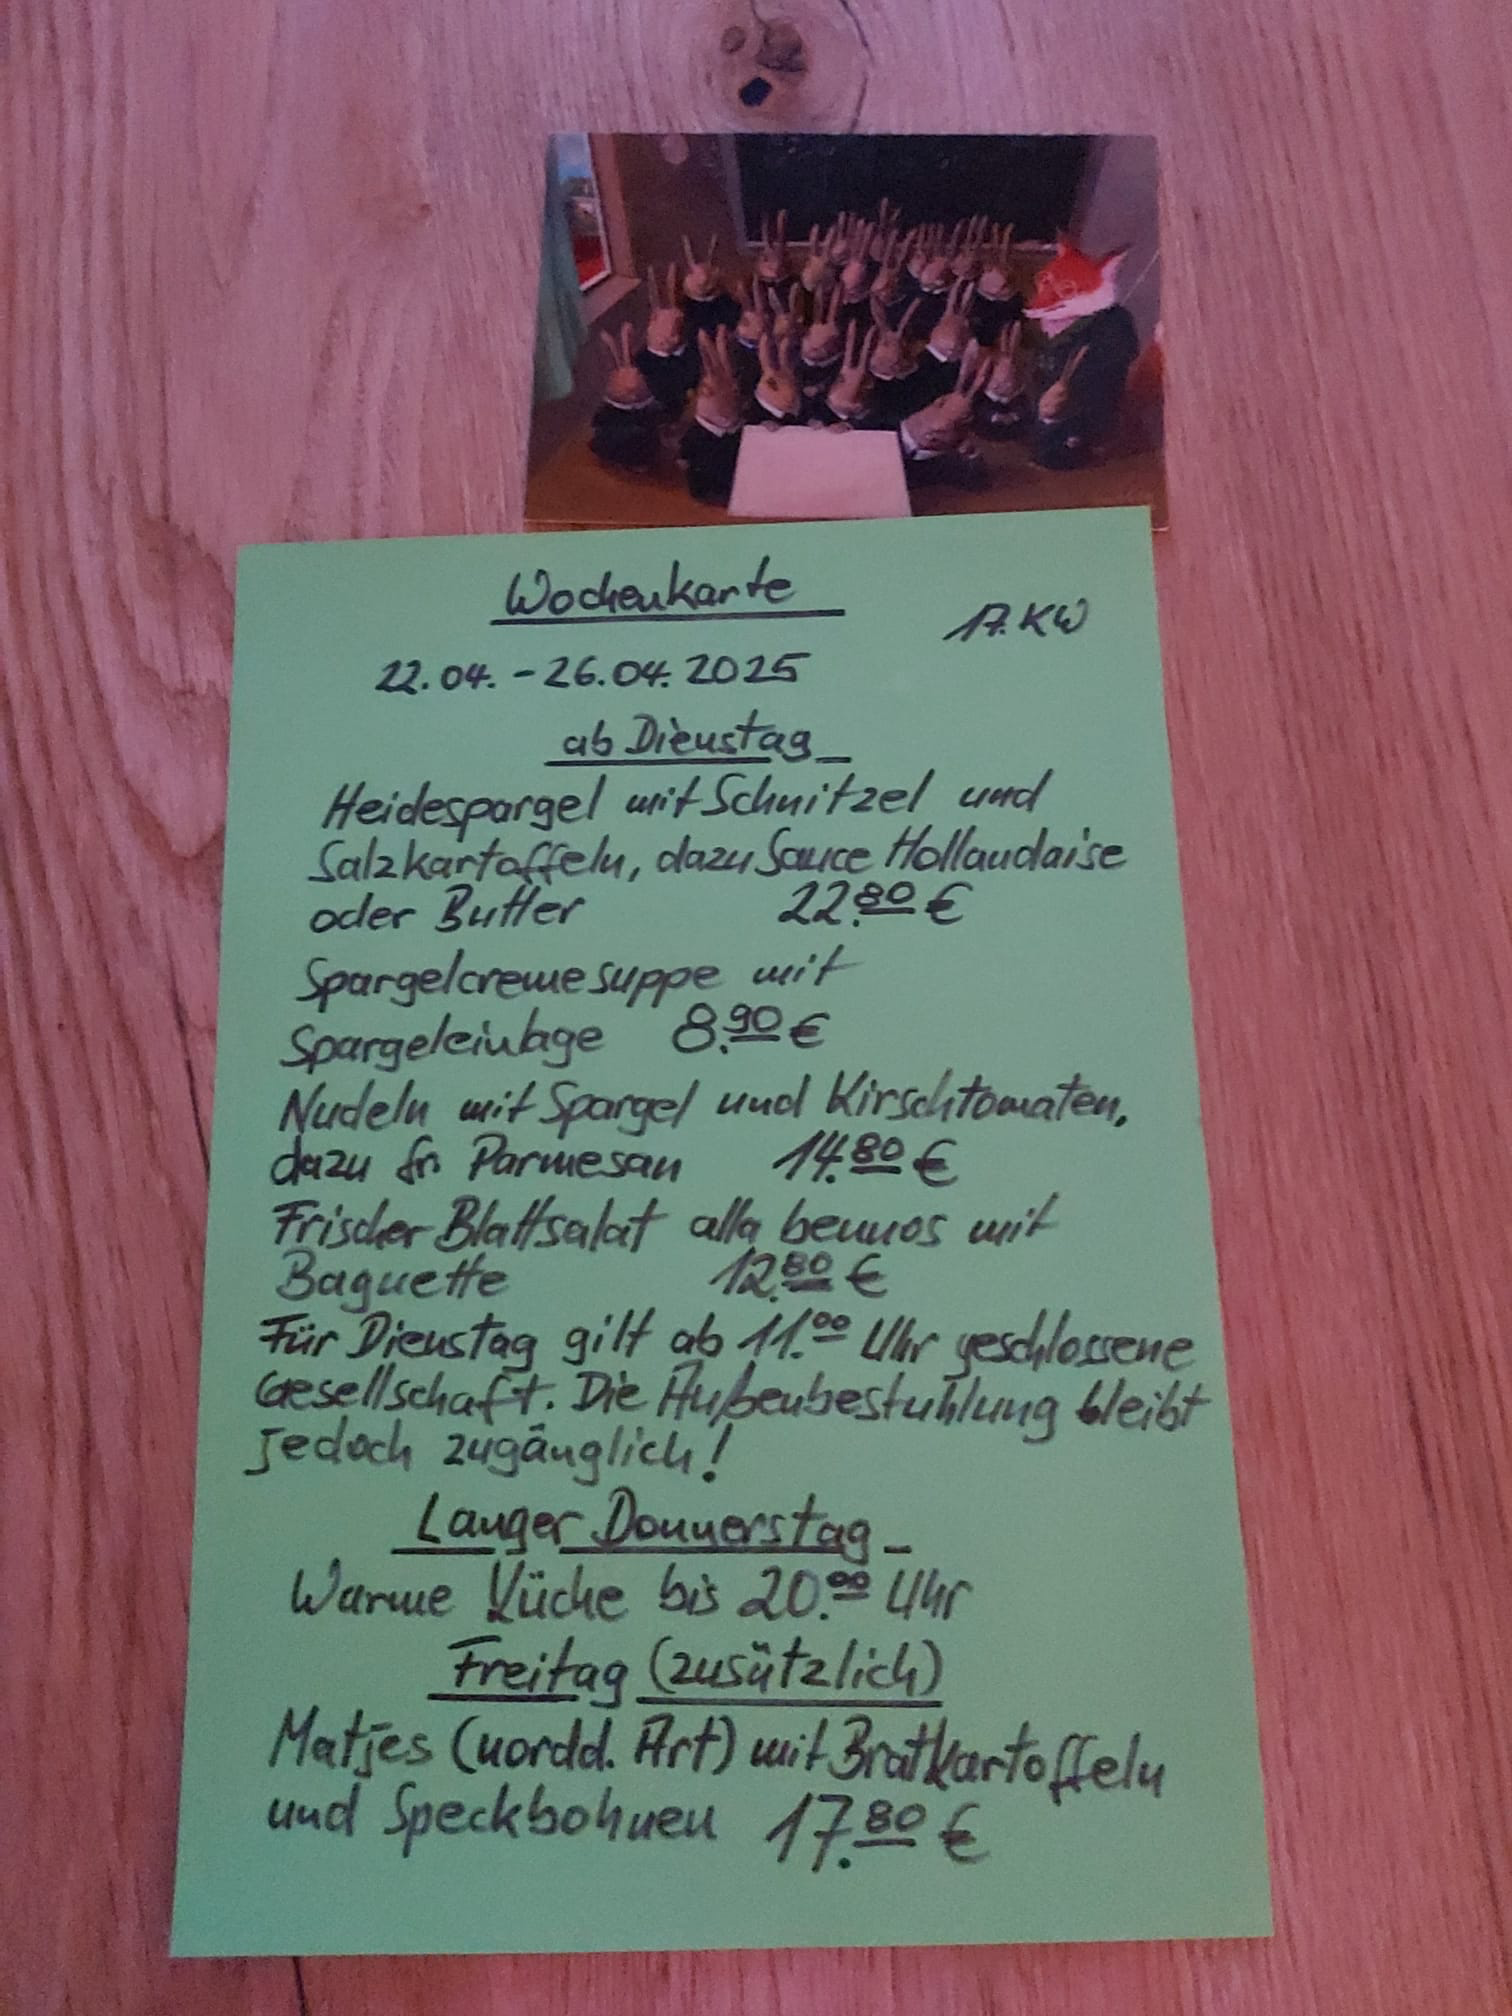 Wochenkarte
17. KW
22.04. - 26.04. 2025
ab Dienstag
Heidespargel mit Schnitzel und
Salzkartoffeln, dazu Sauce Hollandaise
oder Butter 22.80 €
Spargelcremesuppe mit
Spargeleinlage 8.90 €
Nudeln mit Spargel und Kirschtomaten,
dazu fr. Parmesan 14.80 €
Frischer Blattsalat alla bennos mit
Baguette 12.80 €
Für Dienstag gilt ab 11.00 Uhr geschlossene
Gesellschaft. Die Außenbestuhlung bleibt
jedoch zugänglich!
Langer Donnerstag
Warme Küche bis 20.00 Uhr
Freitag (zusätzlich)
Matjes (nordd. Art) mit Bratkartoffeln
und Speckbohnen 17.80 €